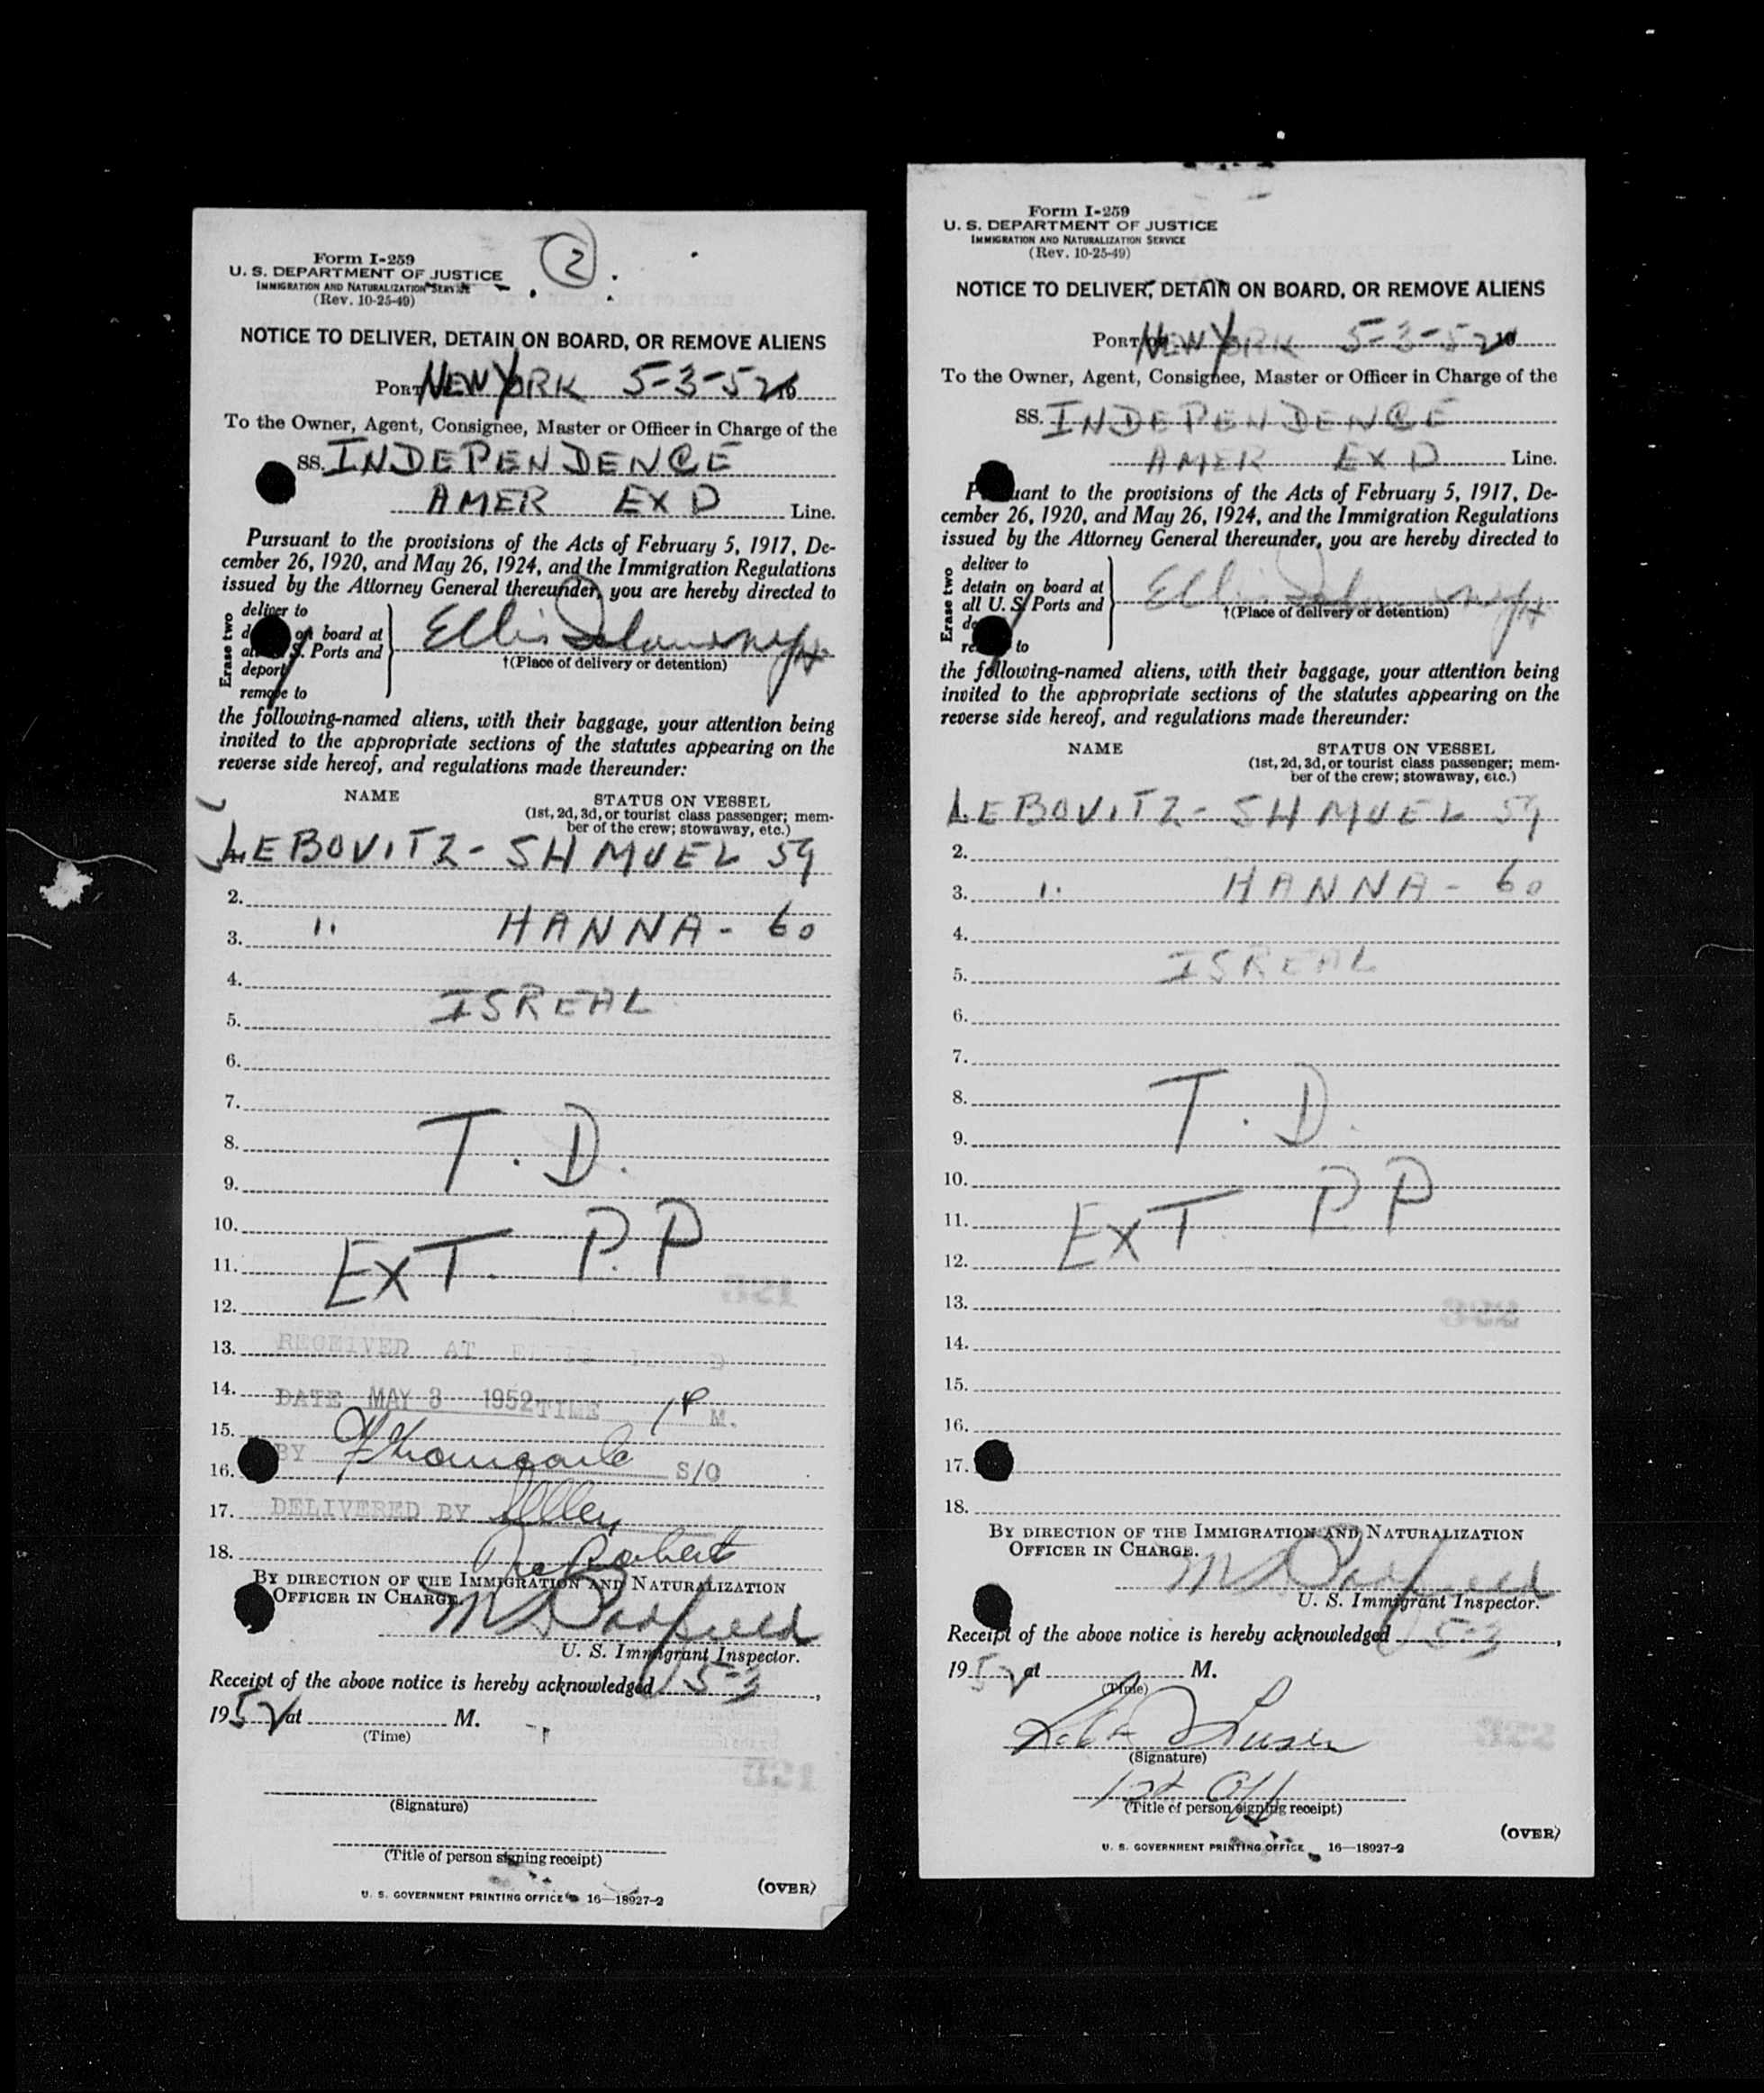 2
Form I-259
U. S. DEPARTMENT OF JUSTICE
IMMIGRATION AND NATURALIZATION SERVICE
(Rev. 10-25-49)
NOTICE TO DELIVER, DETAIN ON BOARD, OR REMOVE ALIENS
PORT NEW YORK 5-3-52 19
To the Owner, Agent, Consignee, Master or Officer in Charge of the
SS. INDEPENDENCE
AMER EXP Line.
Pursuant to the provisions of the Acts of February 5, 1917, De-
cember 26, 1920, and May 26, 1924, and the Immigration Regulations
issued by the Attorney General thereunder, you are hereby directed to
Erase two
deliver to
on board at
S. Ports and
deport
remove to
Ellis Island NYH
†(Place of delivery or detention)
the following-named aliens, with their baggage, your attention being
invited to the appropriate sections of the statutes appearing on the
reverse side hereof, and regulations made thereunder:
NAME STATUS ON VESSEL
(1st, 2d, 3d, or tourist class passenger; mem-
ber of the crew; stowaway, etc.)
LEBOVITZ - SHMUEL 59
2.
3. " HANNA - 60
4.
5. ISREAL
6.
7.
8. T. D.
9.
10.
11. EXT. P.P
12.
13. RECEIVED AT ELLIS ISLAND
14. DATE MAY 3 1952 TIME 1 P M.
15.
16. BY S/O
17. DELIVERED BY
18.
BY DIRECTION OF THE IMMIGRATION AND NATURALIZATION
OFFICER IN CHARGE.
U. S. Immigrant Inspector.
Receipt of the above notice is hereby acknowledged 5-3,
1952 at M.
(Time)
(Signature)
(Title of person signing receipt)
(OVER)
U. S. GOVERNMENT PRINTING OFFICE 16—18927-2
Form I-259
U. S. DEPARTMENT OF JUSTICE
IMMIGRATION AND NATURALIZATION SERVICE
(Rev. 10-25-49)
NOTICE TO DELIVER, DETAIN ON BOARD, OR REMOVE ALIENS
PORT NEW YORK 5-3-52 19
To the Owner, Agent, Consignee, Master or Officer in Charge of the
SS. INDEPENDENCE
AMER EXP Line.
Pursuant to the provisions of the Acts of February 5, 1917, De-
cember 26, 1920, and May 26, 1924, and the Immigration Regulations
issued by the Attorney General thereunder, you are hereby directed to
Erase two
deliver to
detain on board at
all U. S. Ports and
to
Ellis Island NYH
†(Place of delivery or detention)
the following-named aliens, with their baggage, your attention being
invited to the appropriate sections of the statutes appearing on the
reverse side hereof, and regulations made thereunder:
NAME STATUS ON VESSEL
(1st, 2d, 3d, or tourist class passenger; mem-
ber of the crew; stowaway, etc.)
LEBOVITZ - SHMUEL 59
2.
3. " HANNA - 60
4.
5. ISREAL
6.
7.
8. T. D.
9.
10.
11. EXT. P.P
12.
13.
14.
15.
16.
17.
18.
BY DIRECTION OF THE IMMIGRATION AND NATURALIZATION
OFFICER IN CHARGE.
U. S. Immigrant Inspector.
Receipt of the above notice is hereby acknowledged 5-3,
1952 at M.
(Time)
(Signature)
1st Off
(Title of person signing receipt)
(OVER)
U. S. GOVERNMENT PRINTING OFFICE 16—18927-2